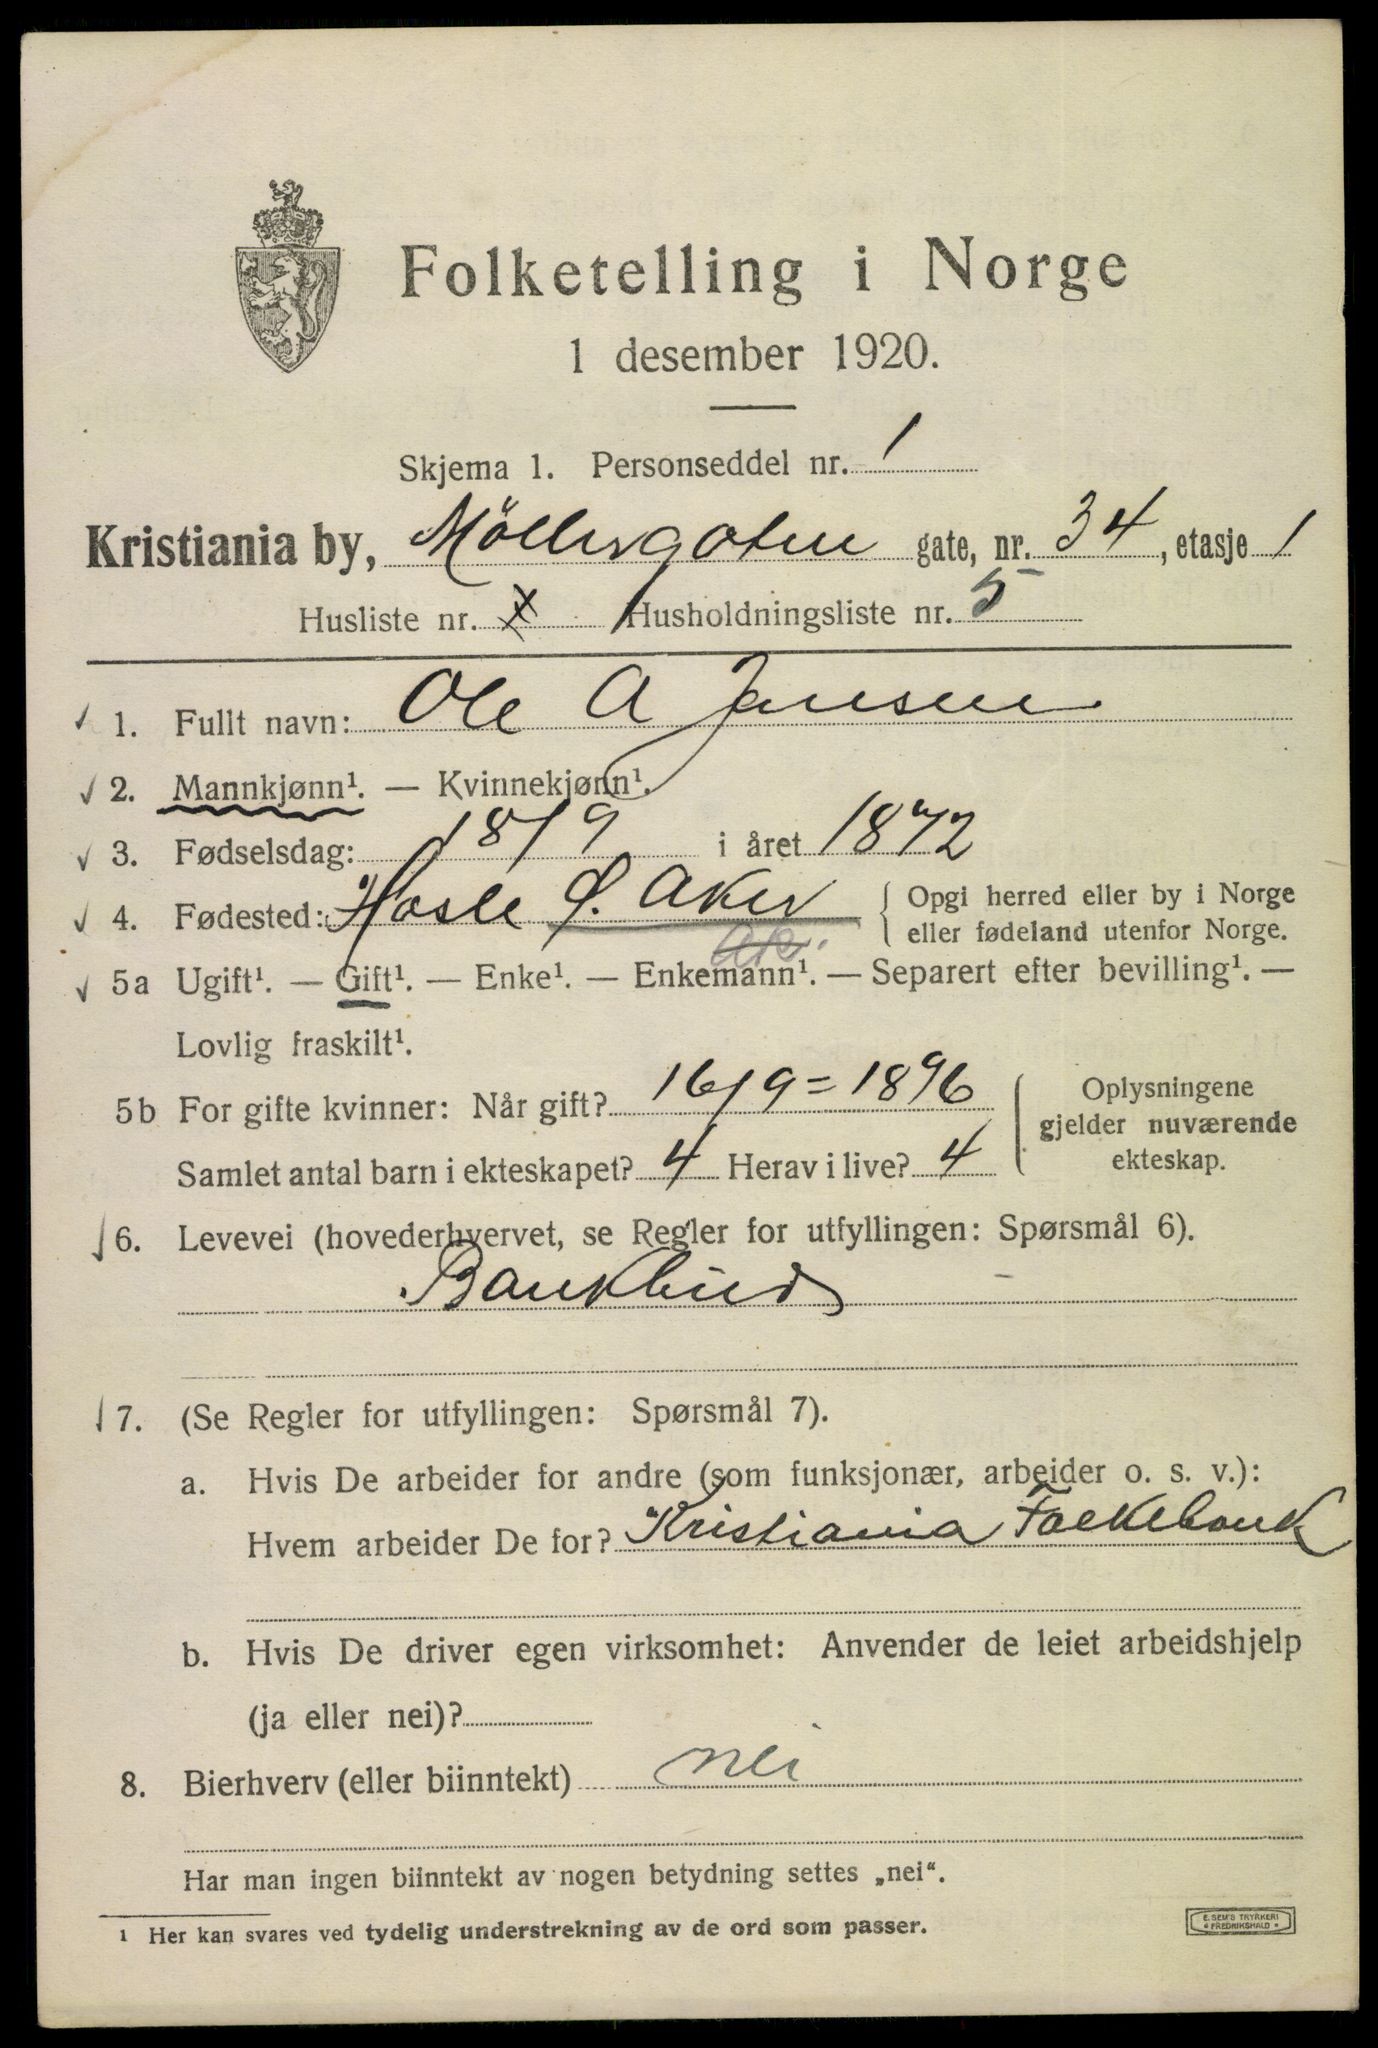 Folketelling i Norge
1 desember 1920.
Skjema 1. Personseddel nr. 1
Kristiania by, Möllergaten gate, nr. 34, etasje 1
Husliste nr. 1 Husholdningsliste nr. 5
1. Fullt navn: Ole A Jansen
2. Mannkjønn¹. — Kvinnekjønn¹.
3. Fødselsdag: 18/9 i året 1872
4. Fødested: Hasle Ø. Aker { Opgi herred eller by i Norge
eller fødeland utenfor Norge.
5a Ugift¹. — Gift¹. — Enke¹. — Enkemann¹. — Separert efter bevilling¹. —
Lovlig fraskilt¹.
5b For gifte kvinner: Når gift? 16/9 = 1896
Samlet antal barn i ekteskapet? 4 Herav i live? 4
Oplysningene
gjelder nuværende
ekteskap.
6. Levevei (hovederhvervet, se Regler for utfyllingen: Spørsmål 6).
Bankbud
7. (Se Regler for utfyllingen: Spørsmål 7).
a. Hvis De arbeider for andre (som funksjonær, arbeider o. s. v.):
Hvem arbeider De for? Kristiania Folkebank
b. Hvis De driver egen virksomhet: Anvender de leiet arbeidshjelp
(ja eller nei)?
8. Bierhverv (eller biinntekt) nei
Har man ingen biinntekt av nogen betydning settes „nei“.
1 Her kan svares ved tydelig understrekning av de ord som passer.
E. SEM'S TRYKKERI
FREDRIKSHALD